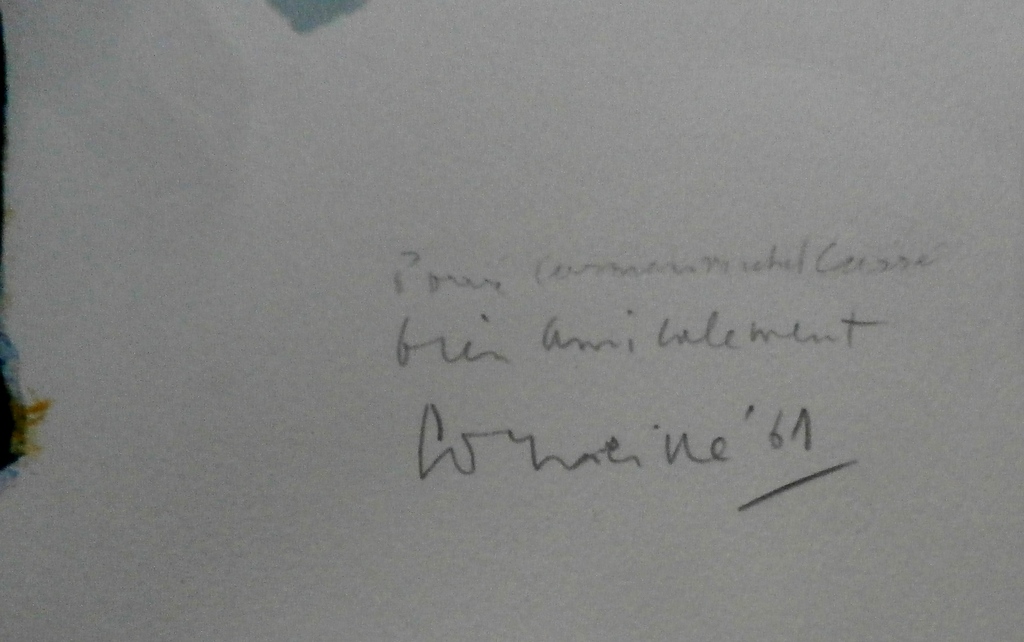 Pour Carmen Michel Cassé
bien amicalement
Corneille '61